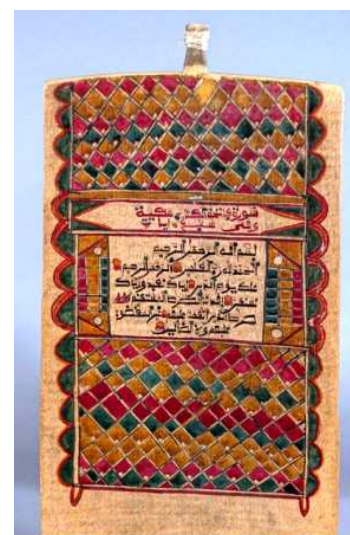 سورة فاتحة مكية
وهي سبع ءايات
بسم الله الرحمن الرحيم
الحمد لله رب العلمين الرحمن الرحيم
ملك يوم الدين إياك نعبد وإياك
نستعين اهدنا الصراط المستقيم
صراط الذين أنعمت عليهم غير المغضوب
عليهم ولا الضالين